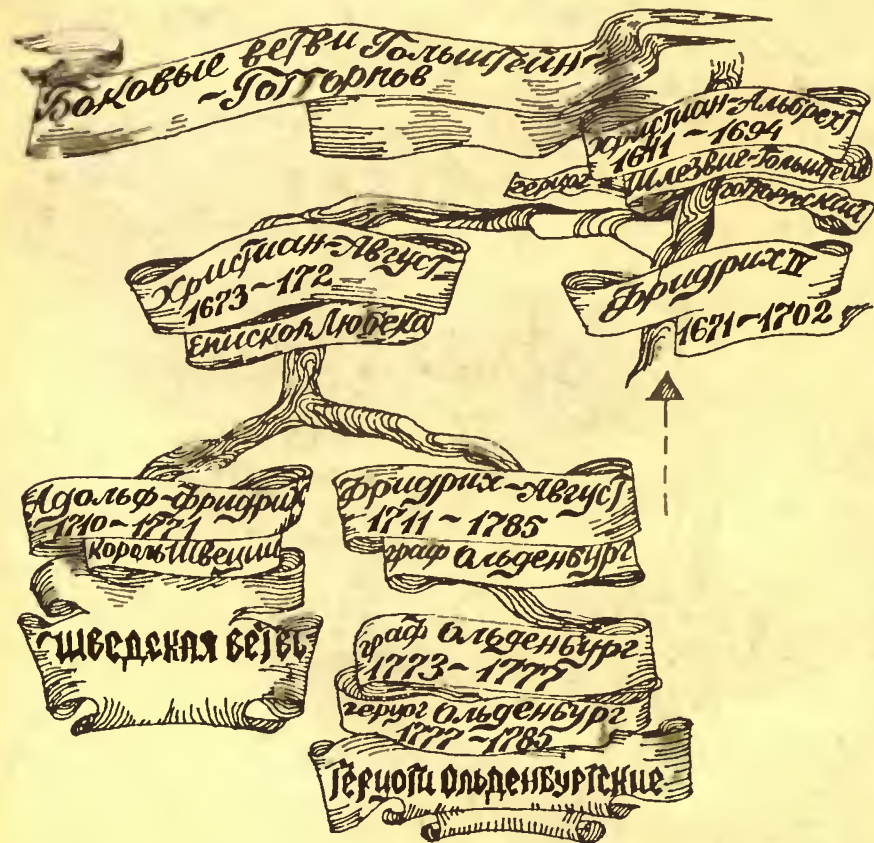 Боковые ветви Гольштейн-
-Готторпов
Христиан-Альбрехт
1641-1694
герцог Шлезвиг-Гольштейн
Готторпский
Христиан-Август
1673-172
Епископ Любека
Фридрих IV
1671-1702
Адольф-Фридрих
1710-1771
король Швеции
Шведская ветвь
Фридрих-Август
1711-1785
граф Ольденбург
граф Ольденбург
1773-1777
герцог Ольденбург
1777-1785
Герцоги Ольденбургские